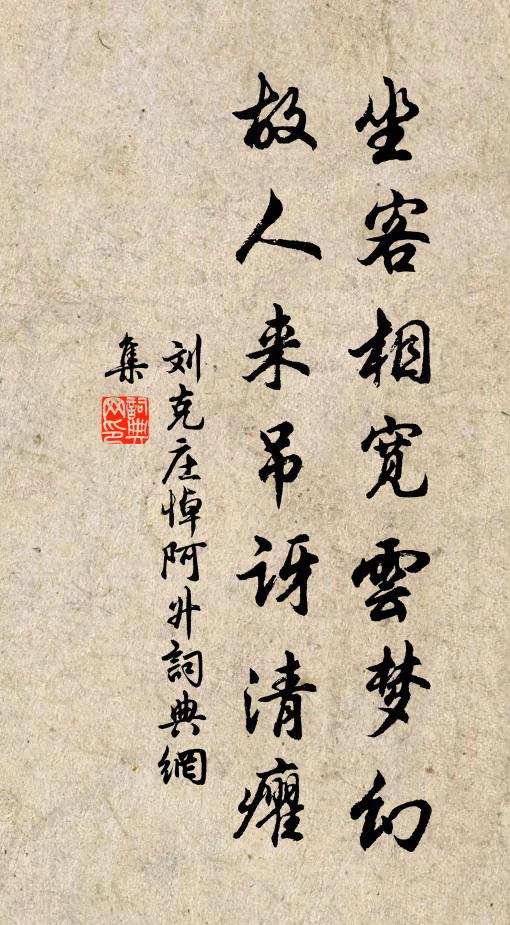 坐客相宽雲梦幻
故人来吊讶清癯
刘克庄悼阿升詞典網
集
詞典网印